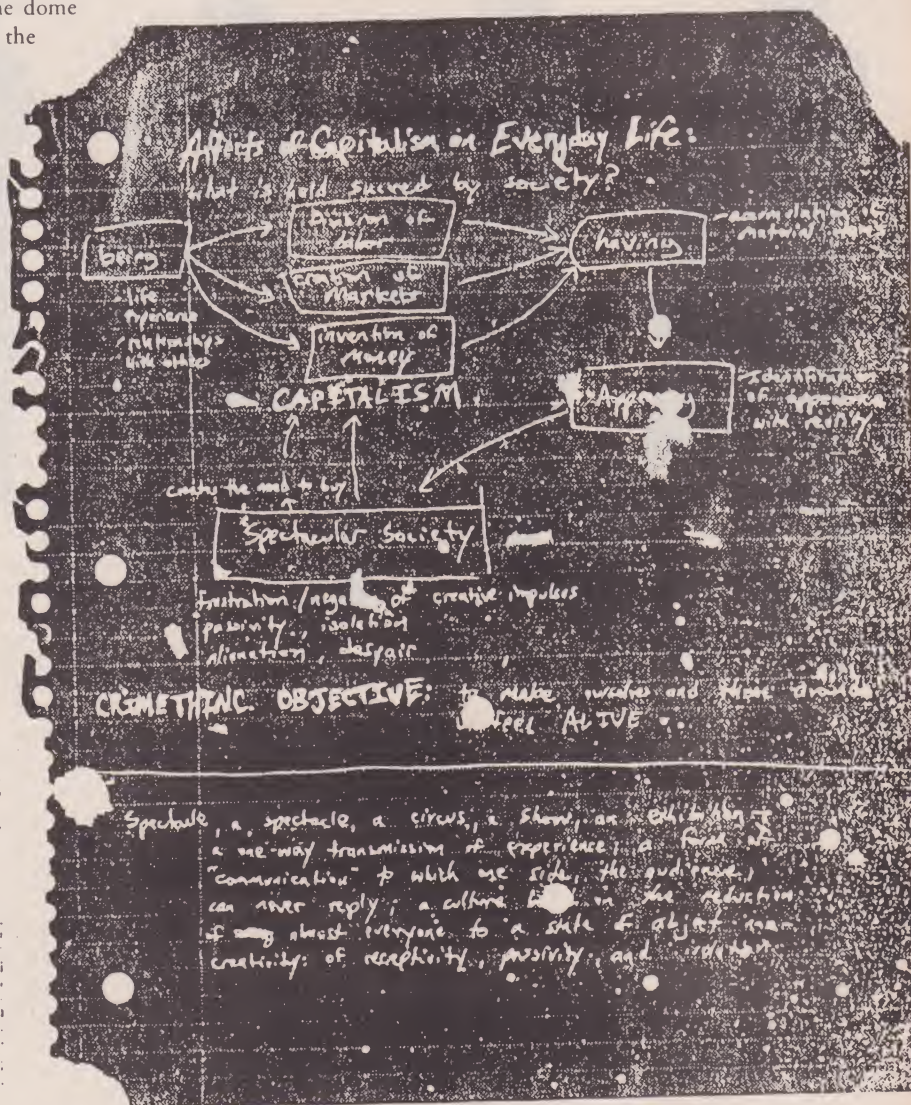 ne dome
the
Affects of Capitalism on Everyday Life:
what is held sacred by society?
being
- life
experience
- relationships
with others
Division of
Labor
Creation of
Markets
invention of
Money
CAPITALISM
having
- accumulation of
material
Appearing
of appearance
with reality
creates the need to buy
Spectacular Society
frustration / of creative impulses
passivity, isolation
alienation, despair
CRIMETHINC OBJECTIVE: to make ourselves and those around
feel ALIVE
Spectacle, n, spectacle, a circus, a show, an exhibition -
a one-way transmission of experience; a form of
"communication" to which one side, the audience,
can never reply; a culture in the reduction
of almost everyone to a state of abject non-
creativity: of receptivity, passivity, and